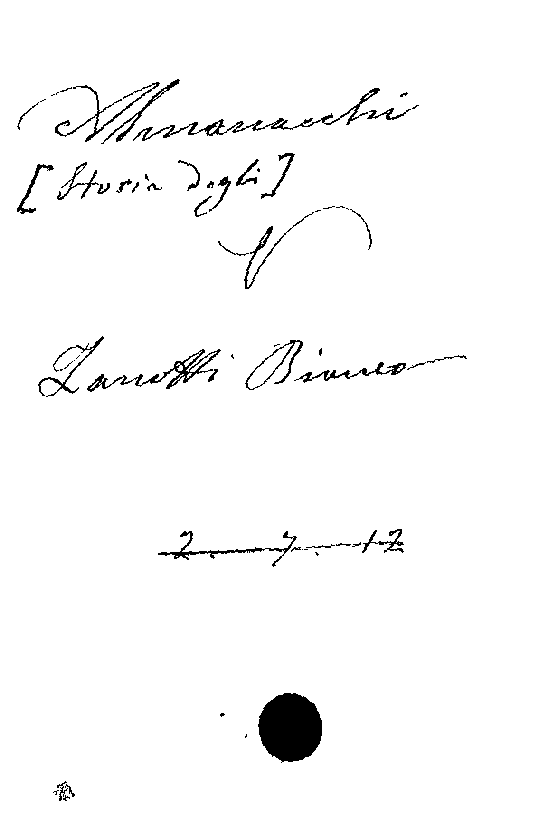 Almanacchi
[Storia degli]
V
Zanotti Bianco
2. 7. 12